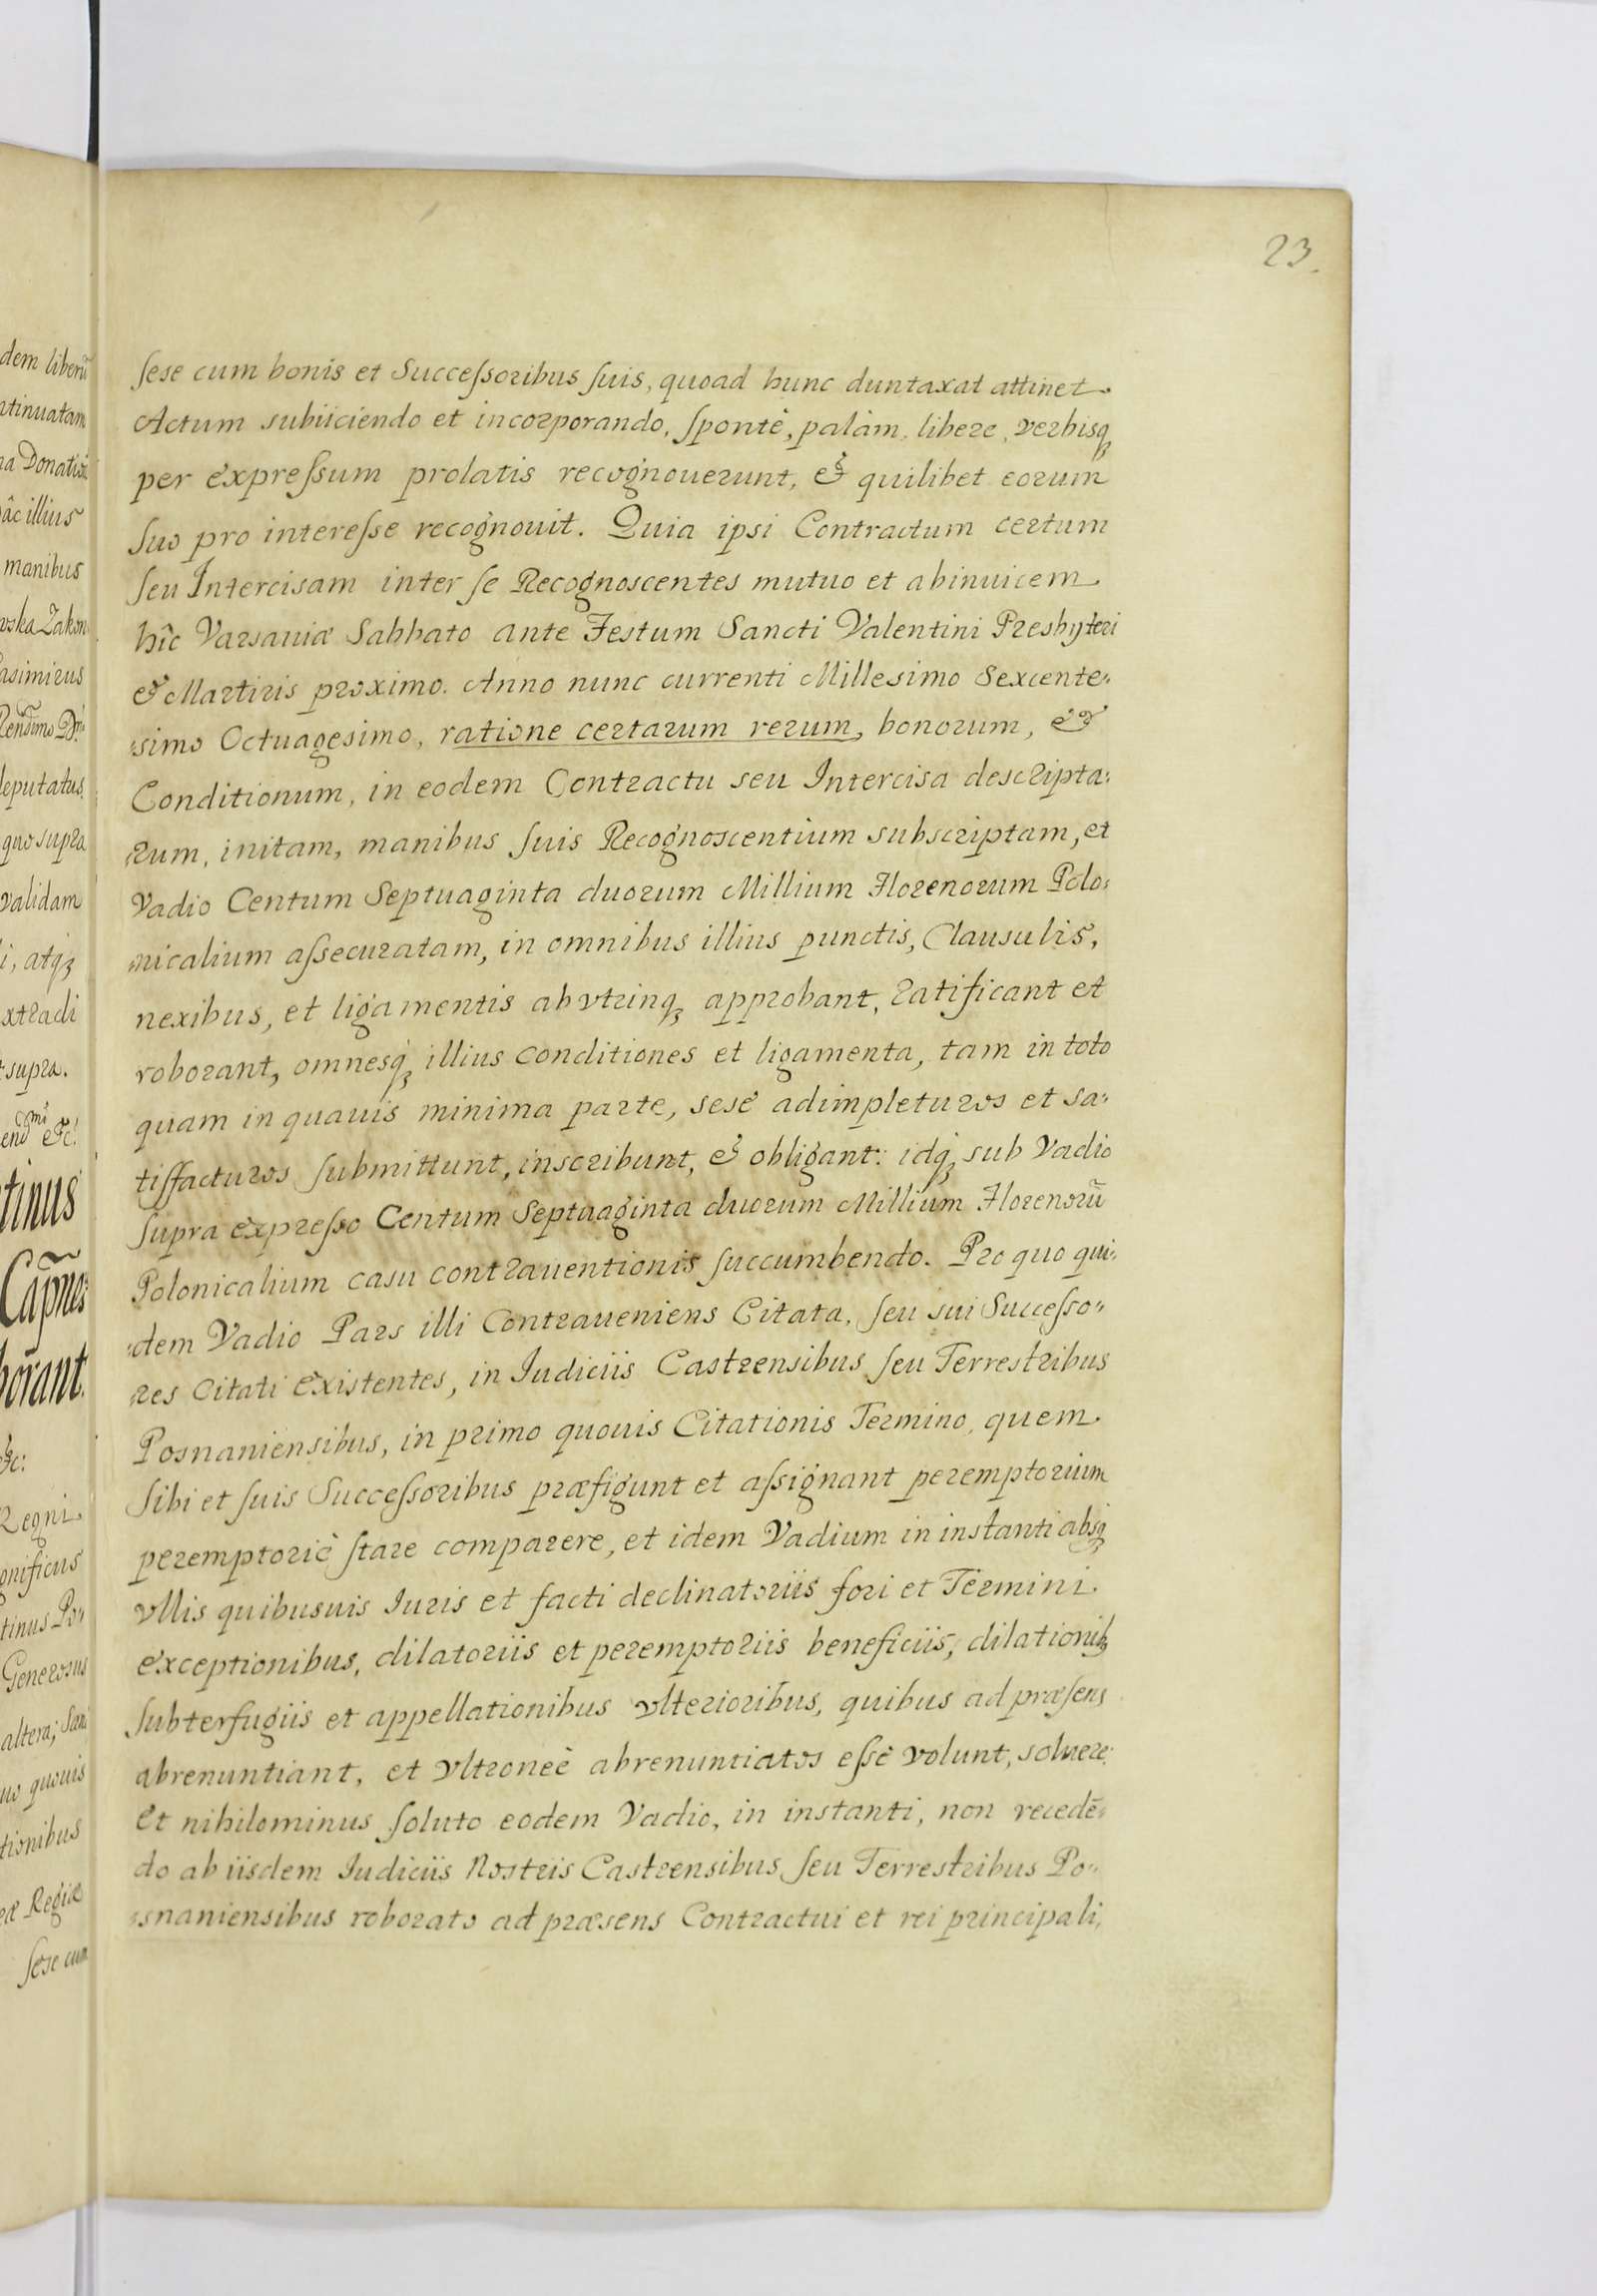 23.
sese cum bonis et Successoribus suis, quoad hunc duntaxat attinet
Actum subiiciendo et incorporando, spontè, palàm, libere, verbisq
per expressum prolatis recognouerunt, & quilibet eorum
suo pro interesse recognouit. Quia ipsi Contractum certum
seu Intercisam inter se Recognoscentes mutuo et abinuicem
hîc Varsauiæ Sabbato ante Festum Sancti Valentini Presbyteri
& Martiris proximo. Anno nunc currenti Millesimo Sexcente-
simo Octuagesimo, ratione certarum rerum, bonorum, &
Conditionum, in eodem Contractu seu Intercisa descripta-
rum, initam, manibus suis Recognoscentium subscriptam, et
Vadio Centum Septuaginta duorum Millium Florenorum Polo-
nicalium assecuratam, in omnibus illius punctis, Clausulis,
nexibus, et ligamentis ab vtrinq approbant, ratificant et
roborant, omnesq illius conditiones et ligamenta, tam in toto
quam in quauis minima parte, sese adimpleturos et sa-
tisfacturos submittunt, inscribunt, & obligant: idq sub Vadio
supra expresso Centum Septuaginta duorum Millium Florenorũ
Polonicalium casu contrauentionis succumbendo. Pro quo qui-
dem Vadio Pars illi Contraueniens Citata, seu sui Successo-
res Citati existentes, in Iudiciis Castrensibus seu Terrestribus
Posnaniensibus, in primo quouis Citationis Termino, quem
sibi et suis Successoribus præfigunt et assignant peremptorium
peremptoriè stare comparere, et idem Vadium in instanti absq
vllis quibusuis Iuris et facti declinatoriis fori et Termini
exceptionibus, dilatoriis et peremptoriis beneficiis, dilationib
subterfugiis et appellationibus vlterioribus, quibus ad præsens
abrenuntiant, et vltroneè abrenuntiatos esse volunt, soluere
et nihilominus soluto eodem Vadio, in instanti, non recedē-
do ab iisdem Iudiciis Nostris Castrensibus seu Terrestribus Po-
snaniensibus roborato ad præsens Contractui et rei principali,